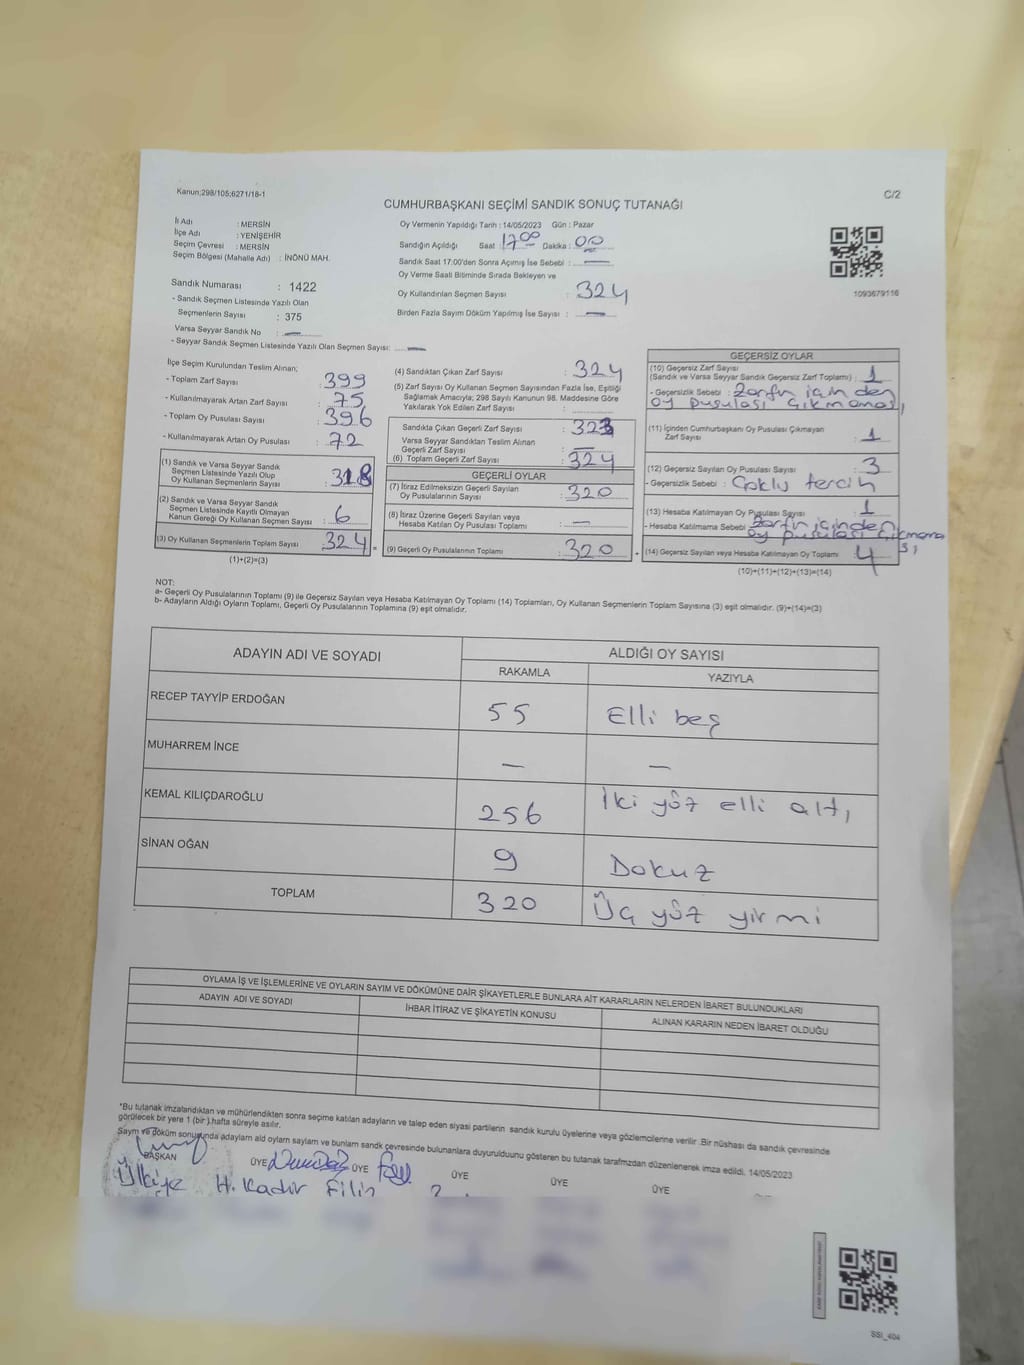 Kanun;298/105;6271/18-1
C/2
CUMHURBAŞKANI SEÇİMİ SANDIK SONUÇ TUTANAĞI
İl Adı : MERSİN
İlçe Adı : YENİŞEHİR
Seçim Çevresi : MERSİN
Seçim Bölgesi (Mahalle Adı) : İNÖNÜ MAH.
Sandık Numarası : 1422
- Sandık Seçmen Listesinde Yazılı Olan
Seçmenlerin Sayısı : 375
Varsa Seyyar Sandık No : —
- Seyyar Sandık Seçmen Listesinde Yazılı Olan Seçmen Sayısı: —
Oy Vermenin Yapıldığı Tarih : 14/05/2023 Gün : Pazar
Sandığın Açıldığı Saat : 17:00 Dakika : 00
Sandık Saat 17:00'den Sonra Açılmış İse Sebebi : —
Oy Verme Saati Bitiminde Sırada Bekleyen ve
Oy Kullandırılan Seçmen Sayısı : 324
Birden Fazla Sayım Döküm Yapılmış İse Sayısı : —
1093679116
İlçe Seçim Kurulundan Teslim Alınan;
- Toplam Zarf Sayısı : 399
- Kullanılmayarak Artan Zarf Sayısı : 75
- Toplam Oy Pusulası Sayısı : 396
- Kullanılmayarak Artan Oy Pusulası : 72
(1) Sandık ve Varsa Seyyar Sandık
Seçmen Listesinde Yazılı Olup
Oy Kullanan Seçmenlerin Sayısı : 318
(2) Sandık ve Varsa Seyyar Sandık
Seçmen Listesinde Kayıtlı Olmayan
Kanun Gereği Oy Kullanan Seçmen Sayısı : 6
(3) Oy Kullanan Seçmenlerin Toplam Sayısı : 324
(1)+(2)=(3)
(4) Sandıktan Çıkan Zarf Sayısı : 324
(5) Zarf Sayısı Oy Kullanan Seçmen Sayısından Fazla İse, Eşitliği
Sağlamak Amacıyla; 298 Sayılı Kanunun 98. Maddesine Göre
Yakılarak Yok Edilen Zarf Sayısı :
Sandıkta Çıkan Geçerli Zarf Sayısı : 323
Varsa Seyyar Sandıktan Teslim Alınan
Geçerli Zarf Sayısı : —
(6) Toplam Geçerli Zarf Sayısı : 324
GEÇERLİ OYLAR
(7) İtiraz Edilmeksizin Geçerli Sayılan
Oy Pusulalarının Sayısı : 320
(8) İtiraz Üzerine Geçerli Sayılan veya
Hesaba Katılan Oy Pusulası Toplamı : —
(9) Geçerli Oy Pusulalarının Toplamı : 320
GEÇERSİZ OYLAR
(10) Geçersiz Zarf Sayısı
(Sandık ve Varsa Seyyar Sandık Geçersiz Zarf Toplamı) : 1
- Geçersizlik Sebebi : Zarfın içinden
oy pusulası çıkmaması
(11) İçinden Cumhurbaşkanı Oy Pusulası Çıkmayan
Zarf Sayısı : 1
(12) Geçersiz Sayılan Oy Pusulası Sayısı : 3
- Geçersizlik Sebebi : Çoklu tercih
(13) Hesaba Katılmayan Oy Pusulası Sayısı : 1
- Hesaba Katılmama Sebebi : Zarfın içinden
oy pusulası çıkmaması
(14) Geçersiz Sayılan veya Hesaba Katılmayan Oy Toplamı : 4
(10)+(11)+(12)+(13)=(14)
NOT:
a- Geçerli Oy Pusulalarının Toplamı (9) ile Geçersiz Sayılan veya Hesaba Katılmayan Oy Toplamı (14) Toplamları, Oy Kullanan Seçmenlerin Toplam Sayısına (3) eşit olmalıdır. (9)+(14)=(3)
b- Adayların Aldığı Oyların Toplamı, Geçerli Oy Pusulalarının Toplamına (9) eşit olmalıdır.
ADAYIN ADI VE SOYADI ALDIĞI OY SAYISI
RAKAMLA YAZIYLA
RECEP TAYYİP ERDOĞAN 55 Elli beş
MUHARREM İNCE — —
KEMAL KILIÇDAROĞLU 256 İki yüz elli altı
SİNAN OĞAN 9 Dokuz
TOPLAM 320 Üç yüz yirmi
OYLAMA İŞ VE İŞLEMLERİNE VE OYLARIN SAYIM VE DÖKÜMÜNE DAİR ŞİKAYETLERLE BUNLARA AİT KARARLARIN NELERDEN İBARET BULUNDUKLARI
ADAYIN ADI VE SOYADI İHBAR İTİRAZ VE ŞİKAYETİN KONUSU ALINAN KARARIN NEDEN İBARET OLDUĞU
*Bu tutanak imzalandıktan ve mühürlendikten sonra seçime katılan adayların ve talep eden siyasi partilerin sandık kurulu üyelerine veya gözlemcilerine verilir. Bir nüshası da sandık çevresinde
görülecek bir yere 1 (bir ) hafta süreyle asılır.
Sayım ve döküm sonuşunda adayların ald oyların sayları ve bunların sandk çevresinde bulunanlara duyurulduunu gösteren bu tutanak tarafmzdan düzenlenerek imza edildi. 14/05/2023
BAŞKAN ÜYE ÜYE ÜYE ÜYE ÜYE
Ülkiye H. Kadir Filiz
SSI_404